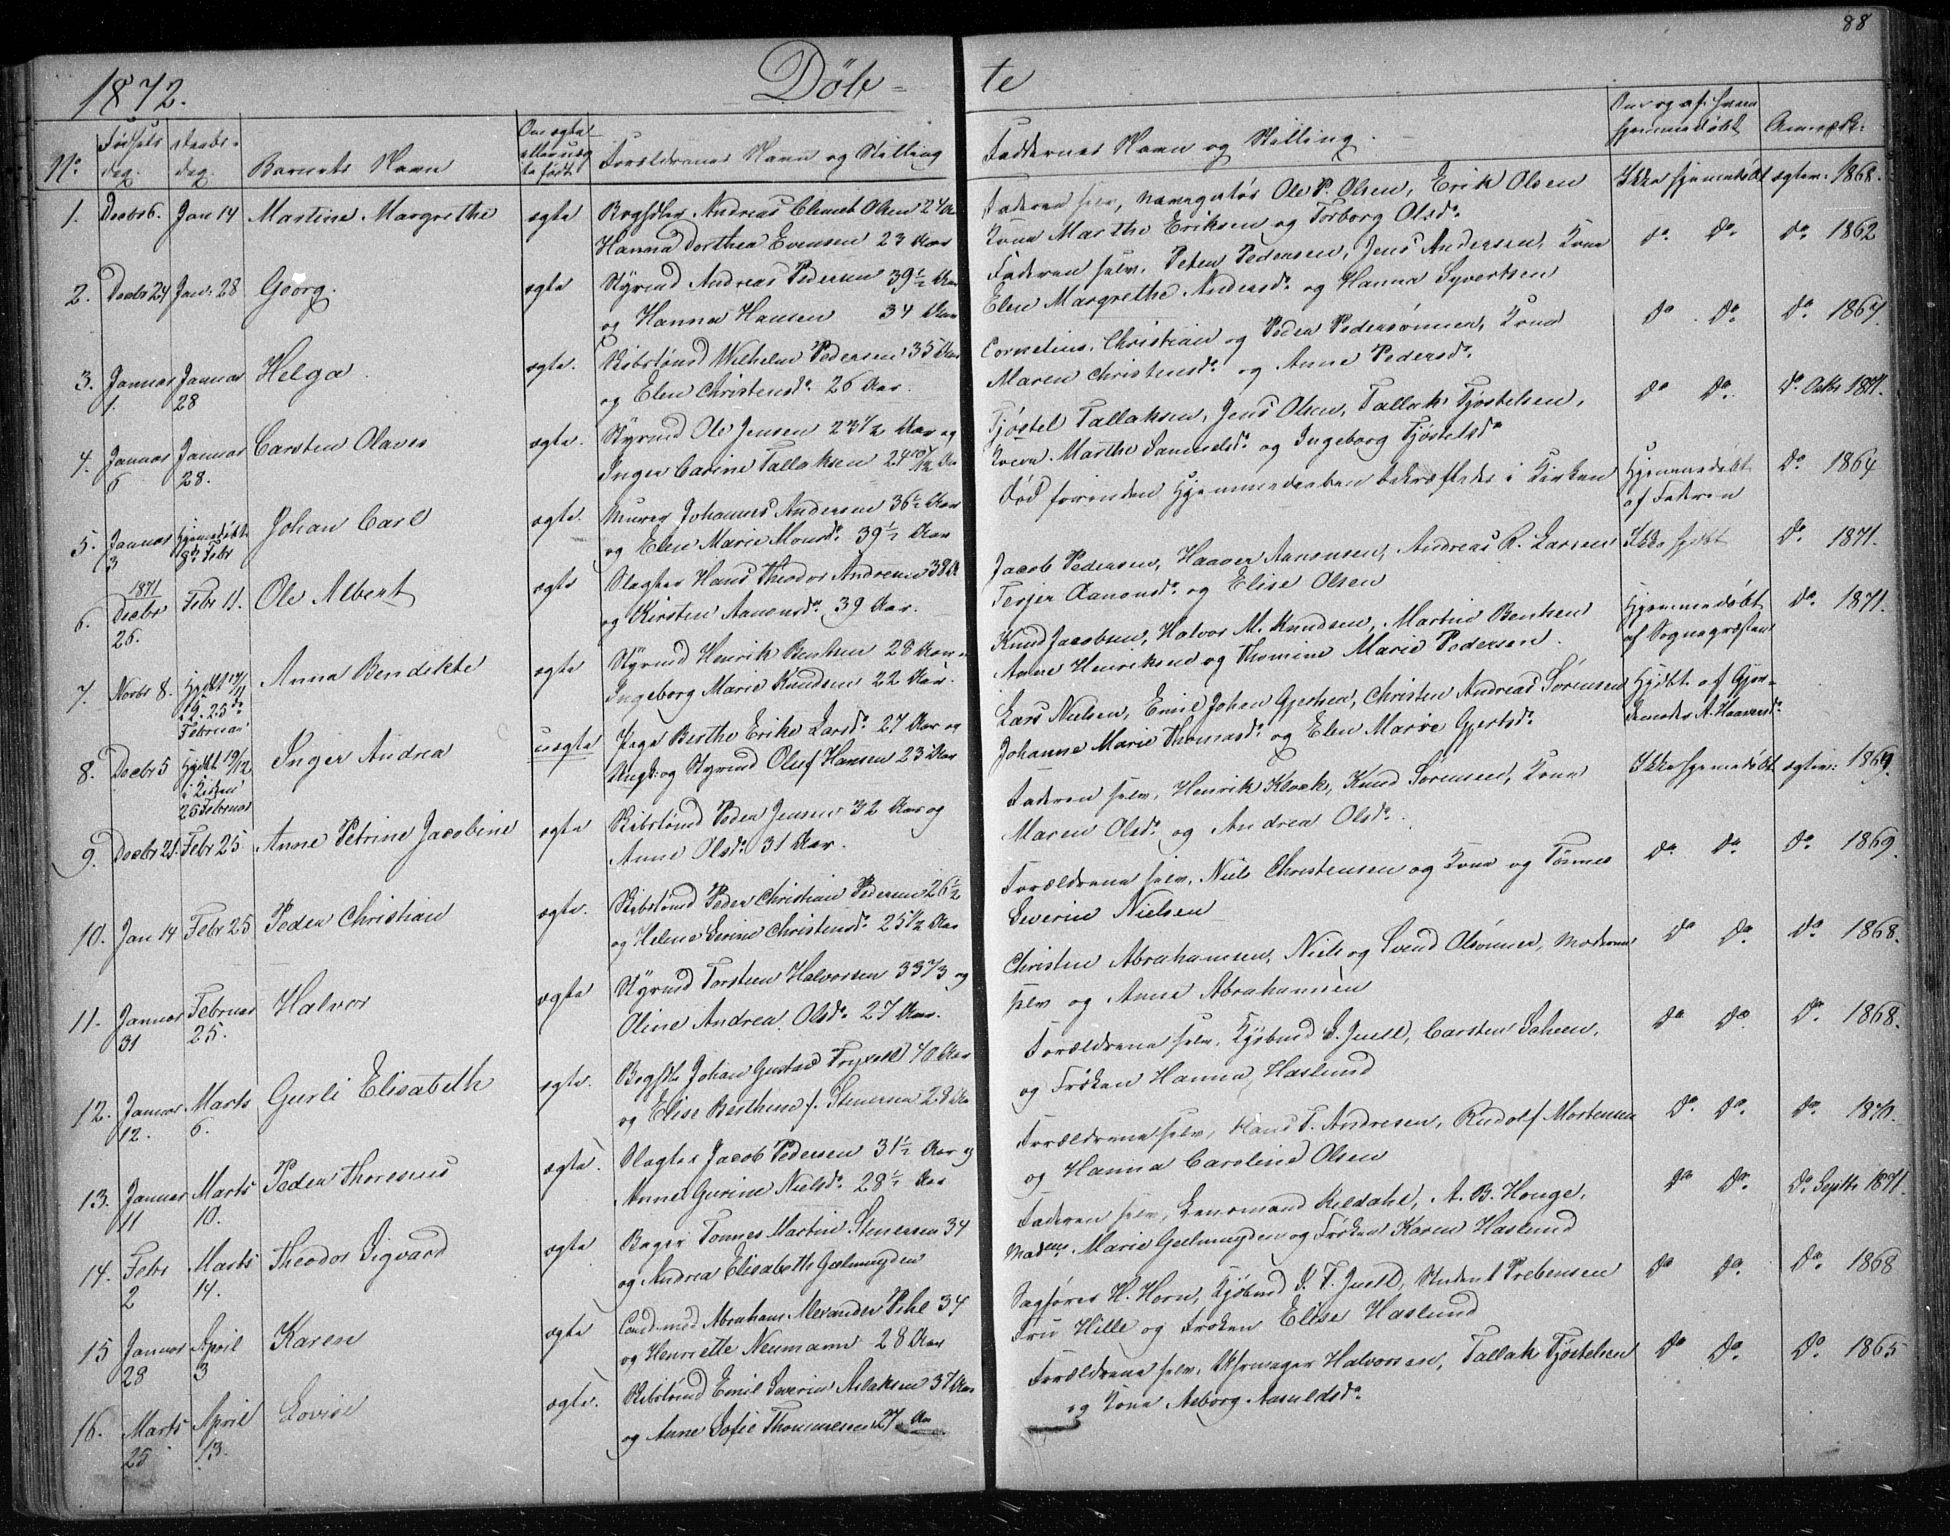 88
1872.
Døb-
te
No.
Fødsels
dag.
Daabs-
dag.
Barnets Navn
Om ægte
eller uæg
te født
Forældrenes Navn og Stilling
Faddernes Navn og Stilling.
Om og af hvem
hjemmedøbt
Anmærk:
1. Decbr 6. Jan 14 Martine Margrethe ægte Andreas Olsen 24
Hanna Dorthea Evensen 23 Aar
Faderen selv, Ole P. Olsen, Erik Olsen
Kone Marthe Eriksen og Torborg Olsdr.
Ikke hjemmedøbt ægtev: 1868.
2. Decbr 24 Jan. 28 Georg. ægte Styrmd Andreas Pedersen 39½ Aar
og Hanna Hansen 34 Aar
Faderen selv. Peter Pedersen, Jens Andersen, Kone
Elen Margrethe Andersdr. og Hanna Syvertsen
do. do. do. 1862
3. Januar
1. Januar
28 Helga ægte. Skibstømd Wilhelm Pedersen 35 Aar
og Elen Christensdr. 26 Aar.
Cornelius, Christian og Peder Pedersønner, Kone
Maren Christensdr. og Anne Pedersdr.
do. do. do. 1867.
4. Januar
6 Januar
28. Carsten Olaves ægte. Styrmd Ole Jensen 23½ Aar og
Inger Carine Tallaksen 24
Tjøstel Tallaksen, Jens Olsen, Tallak Tjøstelsen,
Kone Marthe Samuelsdr. og Ingeborg Tjøstelsdr
do do. do. Octbr 1871.
5. Januar
3 Hjemmedøbt
8de Febr Johan Carl ægte. Murer Johannes Andersen 36½ Aar
og Elen Marie Monsdr. 39½ Aar
Død forinden Hjemmedaaben bekræftedes i Kirken
Hjemmedøbt
af Faderen do. 1864
6. 1871
Decbr
26. Febr 11. Ole Albert ægte Slagter Hans Theodor Andresen 38
og Kirsten Aanonsdr. 39 Aar.
Jacob Pedersen, Haaver Aanensen, Andreas R. Larsen
Terjer Aanonsdr. og Elise Olsen
Ikke hjdbt do. 1871.
7. Novbr 8. Hjdbt
25de
Februar Anna Bendikte ægte Styrmd Henrik Benhen 28 Aar
Ingeborg Marie Knudsen 22 Aar.
Knud Jacobsen, Halvor M. Knudsen, Martin Benhen
Anne Henriksen og Thomine Marie Pedersen.
Hjemmedøbt
af Sognepræsten do. 1871.
8. Decbr 5 Hjdbt 19/12
i Kirken
25 Februar Inger Andrea uægte Pige Berthe Erike Larsdr. 27 Aar og
Ungk. og Styrmd Oluf Hansen 23 Aar
Lars Nielsen, Emil Johan Gjertsen, Christen Andreas Sørensen
Johanne Marie Thomasdr. og Elen Marie Gjertsdr.
Hjdbt af Gjor-
demoder A. Haaversdr.
9. Decbr 21. Febr 25 Anne Petrine Jacobine ægte Skibstømd Peder Jensen 32 Aar og
Anne Olsdr. 31 Aar.
Faderen selv, Henrik Klock, Knud Sørensen, Kone
Maren Olsdr. og Andrea Olsdr.
Ikke hjemmedøbt ægtev: 1869.
10. Jan 14 Febr 25 Peder Christian ægte. Skibstømd Peder Christian Pedersen 26½
og Helene Serine Christensdr. 25½ Aar
Forældrene selv, Niels Christensen og Kone og Tønnes
Severin Nielsen
do. do. do. 1869.
11. Januar
31 Februar
25. Halvor ægte Styrmd Torsten Halvorsen 33⅓ og
Oline Andrea Olsdr. 27 Aar.
Christen Abrahamsen, Niels og Svend Olsønner, Moderen
selv og Anne Abrahamsen
do do. do. 1868.
12. Januar
12. Marts
6. Gurli Elisabeth ægte. Johan Gustav Tryxell 40 Aar
og Elise Berthine f. Stenersen 28 Aar
Forældrene selv, Kjøbmd S. Juell, Carsten Salvesen,
og Frøken Hanna Haslund
do do. do. 1868.
13. Januar
11 Marts
10. Peder Thorenius ægte. Slagter Jacob Pedersen 31½ Aar og
Anne Gurine Nielsdr. 28½ Aar
Forældrene selv, Hans T. Andresen, Rudolf Mortensen
og Hanna Caroline Olsen
do. do. do. 1870.
14. Febr
2 Marts
14. Theodor Sigvard ægte Bager Tønnes Martin Stenersen 34
og Andrea Elisabeth Gjelmuyden
Faderen selv, Lensmand Kildahl, A. B. Houge,
Marie Gjelmuyden og Frøken Karen Haslund
do do. do. Septbr 1871.
15 Januar
28 April
3 Karen ægte Cand. med. Abraham Alexander Pihl 34
og Henriette Neumann 28 Aar
Sagfører H. Horn, Kjøbmd S. T. Juell, Student Prebensen
Fru Hille og Frøken Elise Haslund
do do. do. 1868
16. Marts
25 April
13. Lovise ægte. Skibstømd Emil Severin Aslaksen 37 Aar
og Anne Sofie Thommesen 27 Aar
Forældrene selv, Uhrmager Halvorsen, Tallak Tjøstelsen
og Kone Aaborg Aasuldsdr.
do do. do. 1865